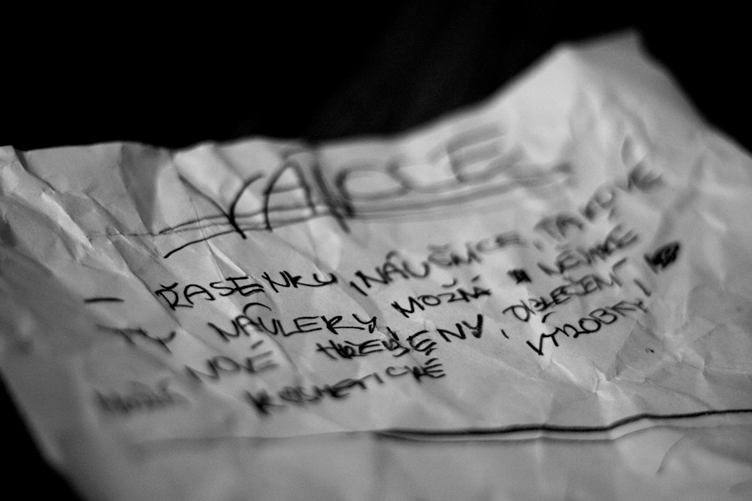 VÁNOCE
- ŘASENKU, NÁUŠNICE, TAKOVÉ
TY NÁVLEKY, MOŽNÁ NĚJAKÉ
NOVÉ OBLEČENÍ
MOŽNÁ KOSMETICKÉ VÝROBKY,